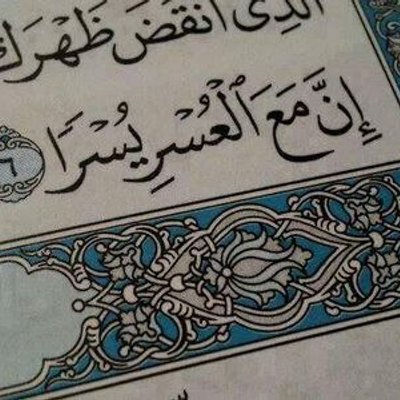 الَّذِى أَنقَضَ ظَهْرَكَ
إِنَّ مَعَ ٱلْعُسْرِ يُسْرًا ٦